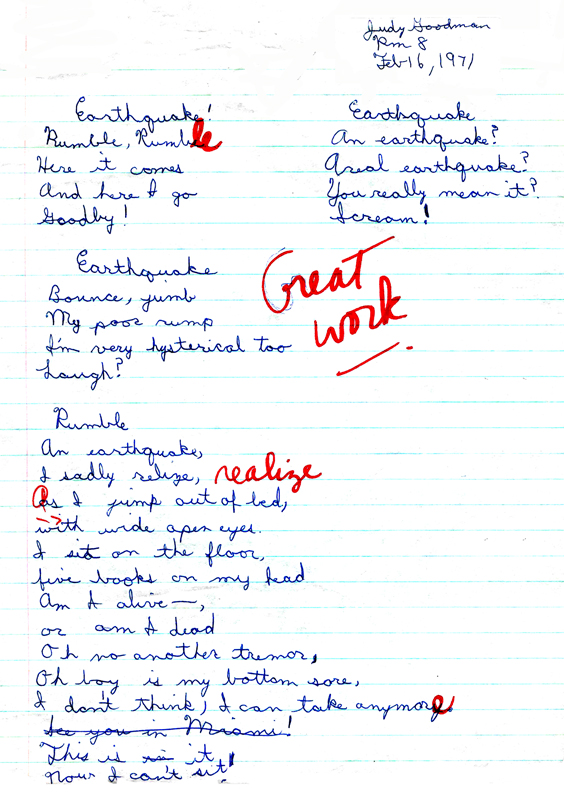 Judy Goodman
Rm 8
Feb 16, 1971
Earthquake!
Rumble, Rumble
Here it comes
And here I go
Goodby!
Earthquake
An earthquake?
A real earthquake?
You really mean it?
Scream!
Earthquake
Bounce, jumb
My poor rump
I'm very hysterical too
Laugh?
Great
work
Rumble
An earthquake,
I sadly relize, realize
As I jump out of bed,
with wide open eyes.
I sit on the floor,
five books on my head
Am I alive—,
or am I dead
Oh no another tremor,
Oh boy is my bottom sore,
I don't think, I can take anymore.
See you in Miami!
This is it!
Now I can't sit!